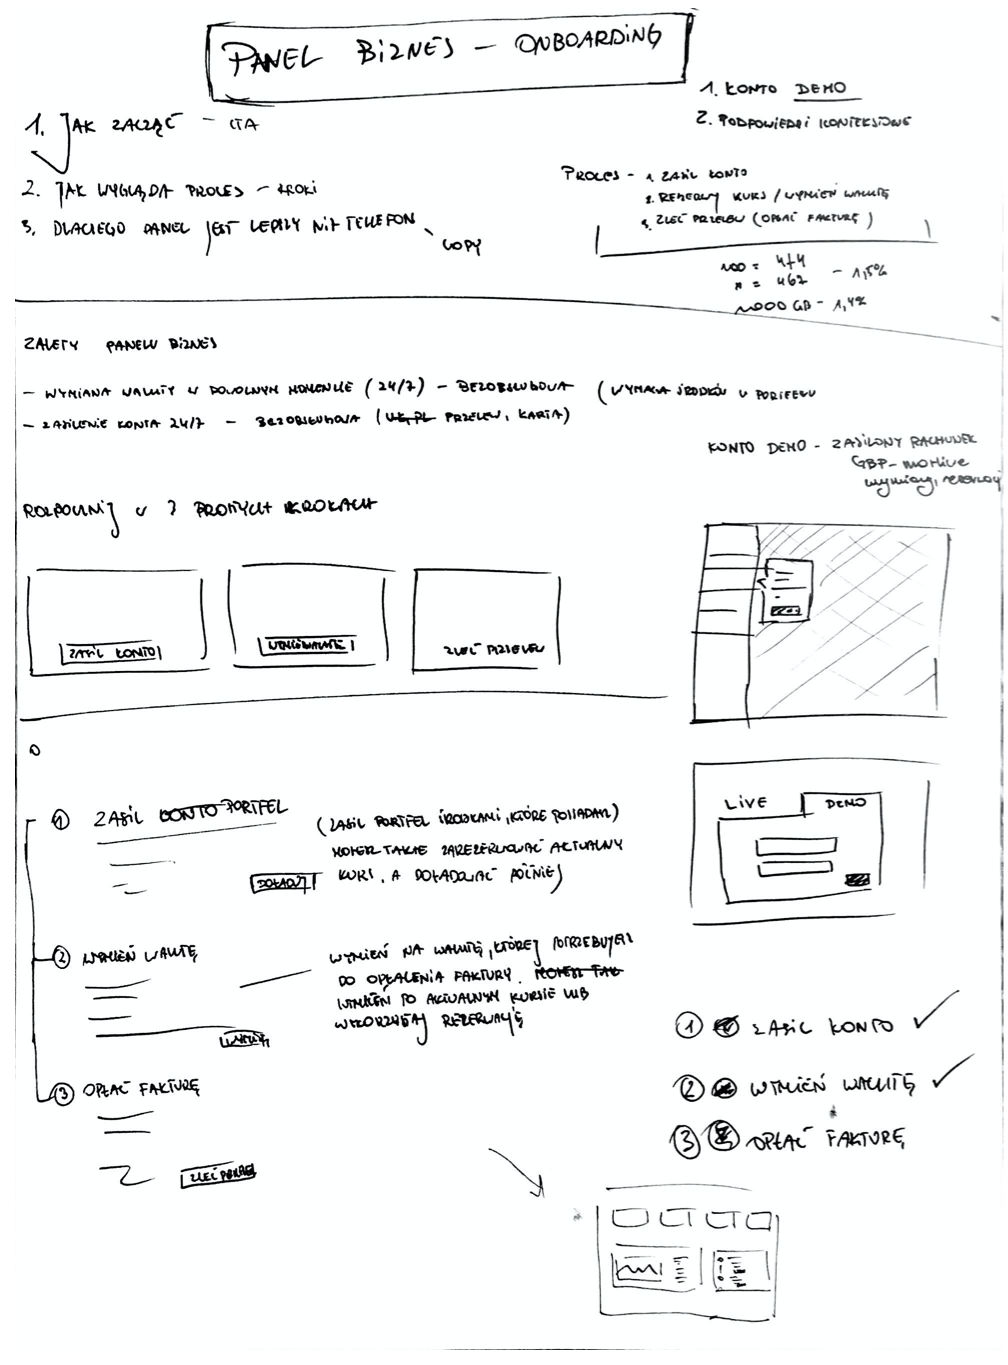 PANEL BIZNES - ONBOARDING
1. KONTO DEMO
2. PODPOWIEDZI KONTEKSTOWE
1. JAK ZACZĄĆ - CTA
2. JAK WYGLĄDA PROCES - KROKI
3. DLACZEGO PANEL JEST LEPSZY NIŻ TELEFON
COPY
PROCES - 1. ZASIL KONTO
2. REZERWUJ KURS / WYMIEŃ WALUTĘ
3. ZLEĆ PRZELEW (OPŁAĆ FAKTURĘ)
- 1,5%
- 1,4%
ZALETY PANELU BIZNES
- WYMIANA WALUTY W DOWOLNYM MOMENCIE (24/7) - BEZOBSŁUGOWA (WYMAGA ŚRODKÓW W PORTFELU
- ZASILENIE KONTA 24/7 - BEZOBSŁUGOWA (PRZELEW, KARTA)
KONTO DEMO - ZASILONY RACHUNEK
GBP - możliwe
wymiany, rezerwacji
ROZPOCZNIJ W 3 PROSTYCH KROKACH
ZASIL KONTO
WYMIEŃ WALUTĘ
ZLEĆ PRZELEW
1 ZASIL KONTO PORTFEL
(ZASIL PORTFEL ŚRODKAMI, KTÓRE POSIADASZ)
MOŻESZ TAKŻE ZAREZERWOWAĆ AKTUALNY
KURS, A DOŁADOWAĆ PÓŹNIEJ
DOŁADUJ
LIVE
DEMO
2 WYMIEŃ WALUTĘ
WYMIEŃ NA WALUTĘ, KTÓREJ POTRZEBUJESZ
DO OPŁACENIA FAKTURY. MOŻESZ TAK
WYMIEŃ PO AKTUALNYM KURSIE LUB
WYKORZYSTAJ REZERWACJĘ
WYMIEŃ
3 OPŁAĆ FAKTURĘ
ZLEĆ PRZELEW
1 ZASIL KONTO
2 WYMIEŃ WALUTĘ
3 OPŁAĆ FAKTURĘ